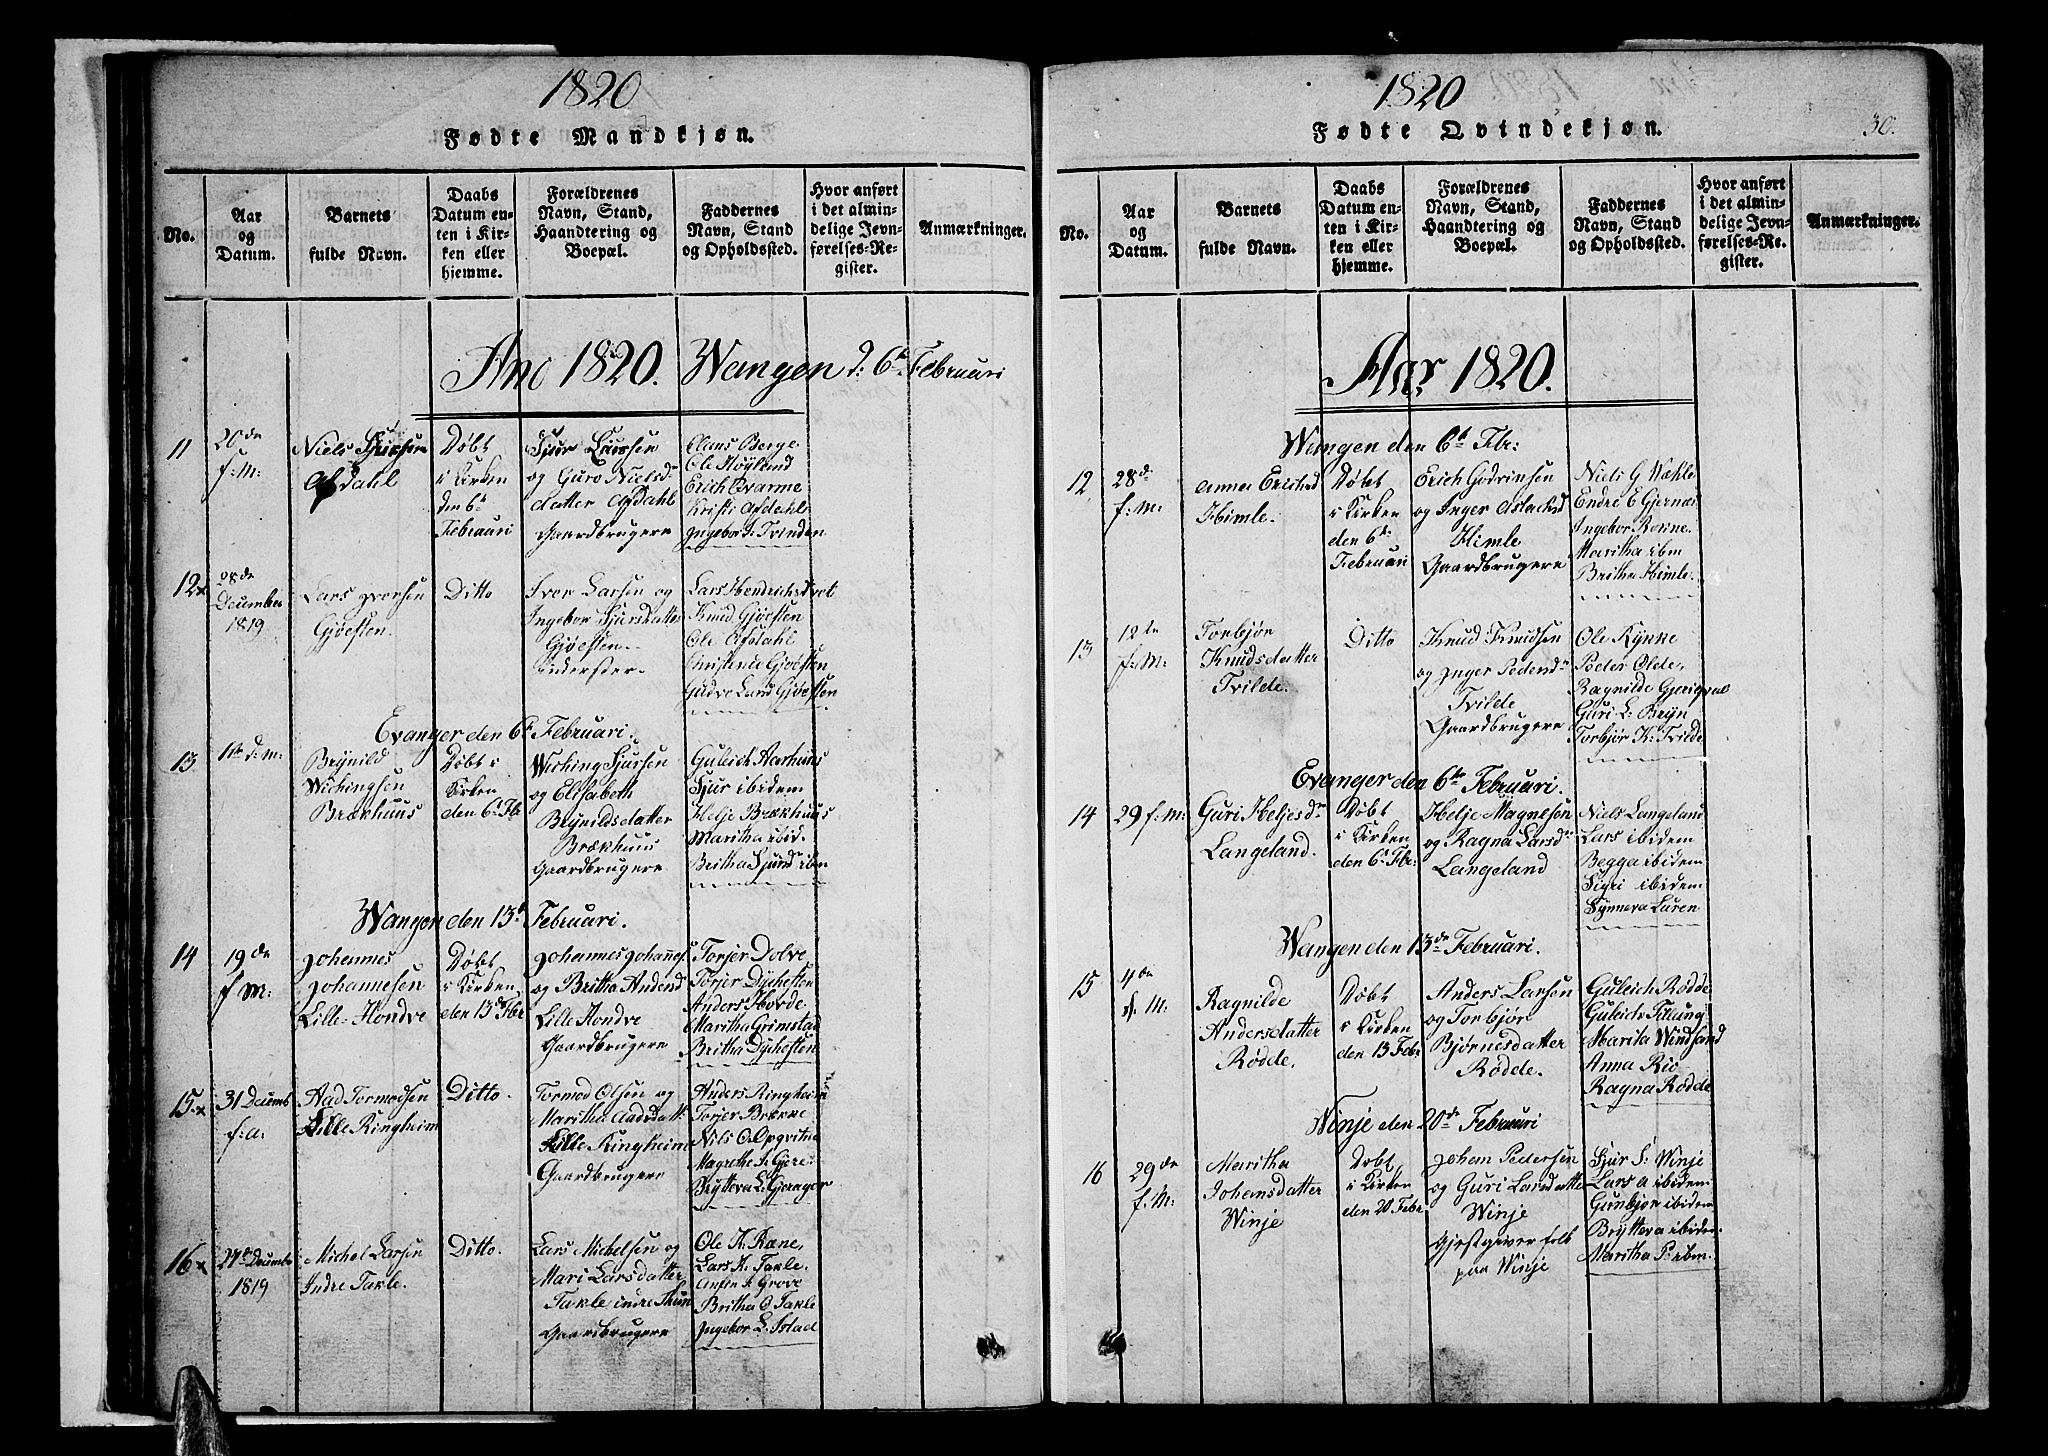 1820
Fødte Mandkjøn.
No.
Aar
og
Datum.
Barnets
fulde Navn.
Daabs
Datum en-
ten i Kir-
ken eller
hjemme.
Forældrenes
Navn, Stand,
Haandtering og
Boepæl.
Faddernes
Navn, Stand
og Opholdssted.
Hvor anført
i det almin-
delige Jevn-
førelses-Re-
gister.
Anmærkninger.
Ano 1820. Wangen d. 6te Februari
11
20de
f: M:
Niels Sjursen
Afdahl
Døbt
i Kirken
den 6te
Februari
Sjur Larsen
og Guro Nielsd
datter Afdahl
Gaardbrugere
Claus Berge
Ole Høyland
Erich Qvarme
Kristi Afdahl
Ingebor I. Tvinden
12x
28de
December
1819
Lars Iversen
Gjøesten.
Ditto
Iver Larsen og
Ingebor Sjursdatter
Gjøesten
Inderster.
Lars Hendrichs
Knud Gjøesten
Ole Afdahl
Christense Gjøesten
Gudve Lars Gjøesten
Evanger den 6te Februari.
13
1te d: M:
Brynild
Wichingsen
Brækhuus
Døbt i
Kirken
den 6te Fbr
Wiching Sjursen
og Elisabeth
Brynildsdatter
Brækhuus
Gaardbrugere
Guleich Aarhuus
Sjur ibidem
Helje Brækhuus
Maritha ibid.
Britha Sjursd ibm
Wangen den 13te Februari.
14
19de
f M:
Johannes
Johannesen
Lille-Hondve
Døbt
i Kirken
den 13de Fbr
Johannes Johannes.
og Britha Andersd
Lille Hondve
Gaardbrugere
Torjer Dolve
Torjer Dychesten
Anders Horde
Maritha Grimstad
Britha Dychesten
15x
31 Decemb
f: a:
Aad Tormodsen
Lille Ringheim
Ditto.
Tormod Olsen og
Maritha Aadsdatt
Lille Ringheim
Gaardbrugere
Anders Ringheim
Torjer Brække
Nils O. Opqvitne
Magrethe I. Gjere
Bryteva L. Gjerager
16x
27de Decembr
1819
Michel Larsen
Indre Takle.
Ditto.
Lars Michelsen og
Mari Larsdatter
Takle indre Thun
Gaardbrugere
Ole K. Ræne,
Lars K. Takle.
Anfin I. Grove
Britha O Takle
Ingebor L. Istad
1820
Fødte Qvindekjøn.
30.
No.
Aar
og
Datum.
Barnets
fulde Navn.
Daabs
Datum en-
ten i Kir-
ken eller
hjemme.
Forældrenes
Navn, Stand,
Haandtering og
Boepæl.
Faddernes
Navn, Stand
og Opholdssted.
Hvor anført
i det almin-
delige Jevn-
førelses-Re-
gister.
Anmærkninger.
Aar 1820.
Wangen den 6te Fbr:
12
28de
f: M:
Anna Erichsd
Himle.
Døbt
i Kirken
den 6te
Februari
Erich Godrinsen
og Inger Aslachsd
Himle
Gaardbrugere
Niels G Wahle
Endre E Gjernæs
Ingebor Rønne
Maritha ibm
Britha Himle.
13
12te
f: M:
Torbjør
Knudsdatter
Tvilde.
Ditto
Knud Knudsen
og Inger Pedersd
Tvilde
Gaardbrugere
Ole Rynne
Peder Olde,
Ragnilde
Guri L. Bryn
Torbjør K: Tvilde
Evanger den 6te Februari.
14
29 f: M:
Guri Heljesdr
Langeland.
Døbt
i Kirken
den 6te Fbr:
Helje Magnesøn
og Ragna Larsdr
Langeland
Niels Langeland
Lars ibidem
Begga ibidem
Sigri ibidem
Synneva Laren
Wangen den 13de Februari.
15
4de
d. M:
Ragnilde
Andersdatter
Rødde.
Døbt
i Kirken
den 13 Febr
Anders Larsen
og Torbjør
Bjørnesdatter
Rødde.
Guleich Rødde
Guleich Tillung
Marita Windsand
Anna Rio
Ragna Rødde
Winje den 20de Februari
16
29de
f: M:
Maritha
Johansdatter
Winje
Døbt
i Kirken
den 20 Febr.
Johan Pedersen
og Guri Larsdatter
Winje
Gjestgiver folk
paa Winje
Sjur S: Winje
Lars a ibidem
Gunbjør ibidem
Brytteva ibidem
Maritha P. ibm.